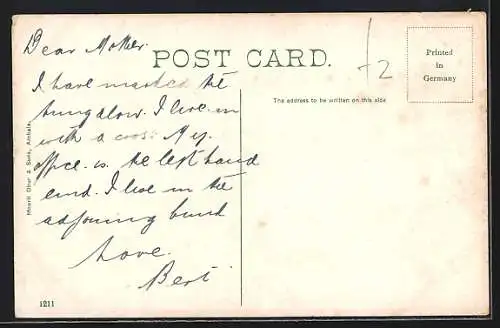 Dear Mother.
POST CARD.
Printed
in
Germany
The address to be written on this side
I have marked the
bungalow. I live in
with a cross. My
office is the left hand
end. I live in the
adjoining
Love.
Bert
1211